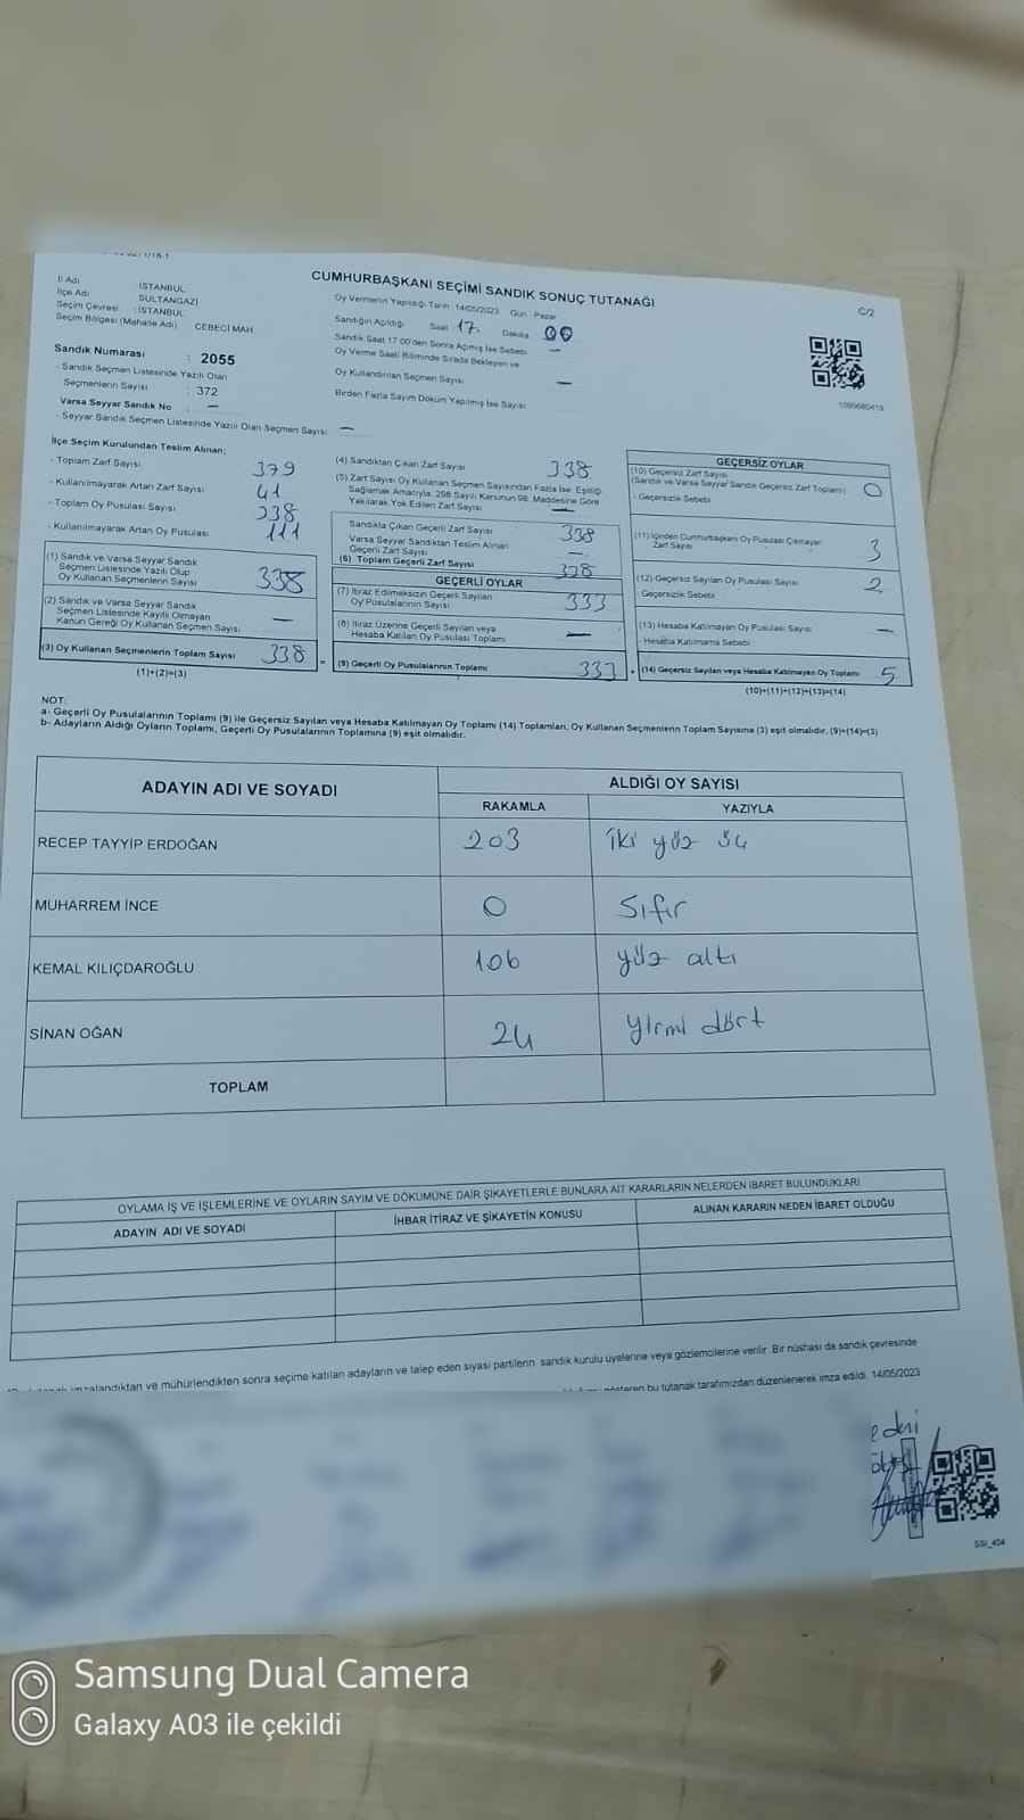 CUMHURBAŞKANI SEÇİMİ SANDIK SONUÇ TUTANAĞI
C/2
İl Adı : İSTANBUL
İlçe Adı : SULTANGAZİ
Seçim Çevresi : İSTANBUL
Seçim Bölgesi (Mahalle Adı) : CEBECİ MAH
Sandık Numarası : 2055
- Sandık Seçmen Listesinde Yazılı Olan
Seçmenlerin Sayısı : 372
Varsa Seyyar Sandık No : —
- Seyyar Sandık Seçmen Listesinde Yazılı Olan Seçmen Sayısı : —
Oy Vermenin Yapıldığı Tarih : 14/05/2023 Gün : Pazar
Sandığın Açıldığı Saat 17 Dakika 00
Sandık Saat 17.00'den Sonra Açılmış İse Sebebi —
Oy Verme Saati Bitiminde Sırada Bekleyen ve
Oy Kullandırılan Seçmen Sayısı —
Birden Fazla Sayım Döküm Yapılmış İse Sayısı
İlçe Seçim Kurulundan Teslim Alınan;
- Toplam Zarf Sayısı 379
- Kullanılmayarak Artan Zarf Sayısı 41
- Toplam Oy Pusulası Sayısı
- Kullanılmayarak Artan Oy Pusulası 111
(1) Sandık ve Varsa Seyyar Sandık
Seçmen Listesinde Yazılı Olup
Oy Kullanan Seçmenlerin Sayısı 338
(2) Sandık ve Varsa Seyyar Sandık
Seçmen Listesinde Kayıtlı Olmayan
Kanun Gereği Oy Kullanan Seçmen Sayısı —
(3) Oy Kullanan Seçmenlerin Toplam Sayısı 338
(1)+(2)=(3)
(4) Sandıktan Çıkan Zarf Sayısı 338
(5) Zarf Sayısı Oy Kullanan Seçmen Sayısından Fazla İse, Eşitliği
Sağlamak Amacıyla, 298 Sayılı Kanunun 98. Maddesine Göre
Yakılarak Yok Edilen Zarf Sayısı —
Sandıkta Çıkan Geçerli Zarf Sayısı 338
Varsa Seyyar Sandıktan Teslim Alınan
Geçerli Zarf Sayısı —
(6) Toplam Geçerli Zarf Sayısı
GEÇERLİ OYLAR
(7) İtiraz Edilmeksizin Geçerli Sayılan
Oy Pusulalarının Sayısı 333
(8) İtiraz Üzerine Geçerli Sayılan veya
Hesaba Katılan Oy Pusulası Toplamı —
(9) Geçerli Oy Pusulalarının Toplamı 333
GEÇERSİZ OYLAR
(10) Geçersiz Zarf Sayısı
(Sandık ve Varsa Seyyar Sandık Geçersiz Zarf Toplamı) 0
- Geçersizlik Sebebi
(11) İçinden Cumhurbaşkanı Oy Pusulası Çıkmayan
Zarf Sayısı 3
(12) Geçersiz Sayılan Oy Pusulası Sayısı 2
Geçersizlik Sebebi
(13) Hesaba Katılmayan Oy Pusulası Sayısı —
- Hesaba Katılmama Sebebi
(14) Geçersiz Sayılan veya Hesaba Katılmayan Oy Toplamı 5
(10)+(11)+(12)+(13)=(14)
NOT:
a- Geçerli Oy Pusulalarının Toplamı (9) ile Geçersiz Sayılan veya Hesaba Katılmayan Oy Toplamı (14) Toplamları, Oy Kullanan Seçmenlerin Toplam Sayısına (3) eşit olmalıdır. (9)+(14)=(3)
b- Adayların Aldığı Oyların Toplamı, Geçerli Oy Pusulalarının Toplamına (9) eşit olmalıdır.
ADAYIN ADI VE SOYADI ALDIĞI OY SAYISI
RAKAMLA YAZIYLA
RECEP TAYYİP ERDOĞAN 203 iki yüz üç
MUHARREM İNCE 0 Sıfır
KEMAL KILIÇDAROĞLU 106 yüz altı
SİNAN OĞAN 24 yirmi dört
TOPLAM
OYLAMA İŞ VE İŞLEMLERİNE VE OYLARIN SAYIM VE DÖKÜMÜNE DAİR ŞİKAYETLERLE BUNLARA AİT KARARLARIN NELERDEN İBARET BULUNDUKLARI
ADAYIN ADI VE SOYADI İHBAR İTİRAZ VE ŞİKAYETİN KONUSU ALINAN KARARIN NEDEN İBARET OLDUĞU
ve mühürlendikten sonra seçime katılan adayların ve talep eden siyasi partilerin sandık kurulu üyelerine veya gözlemcilerine verilir. Bir nüshası da sandık çevresinde
gösteren bu tutanak tarafımızdan düzenlenerek imza edildi. 14/05/2023
Samsung Dual Camera
Galaxy A03 ile çekildi